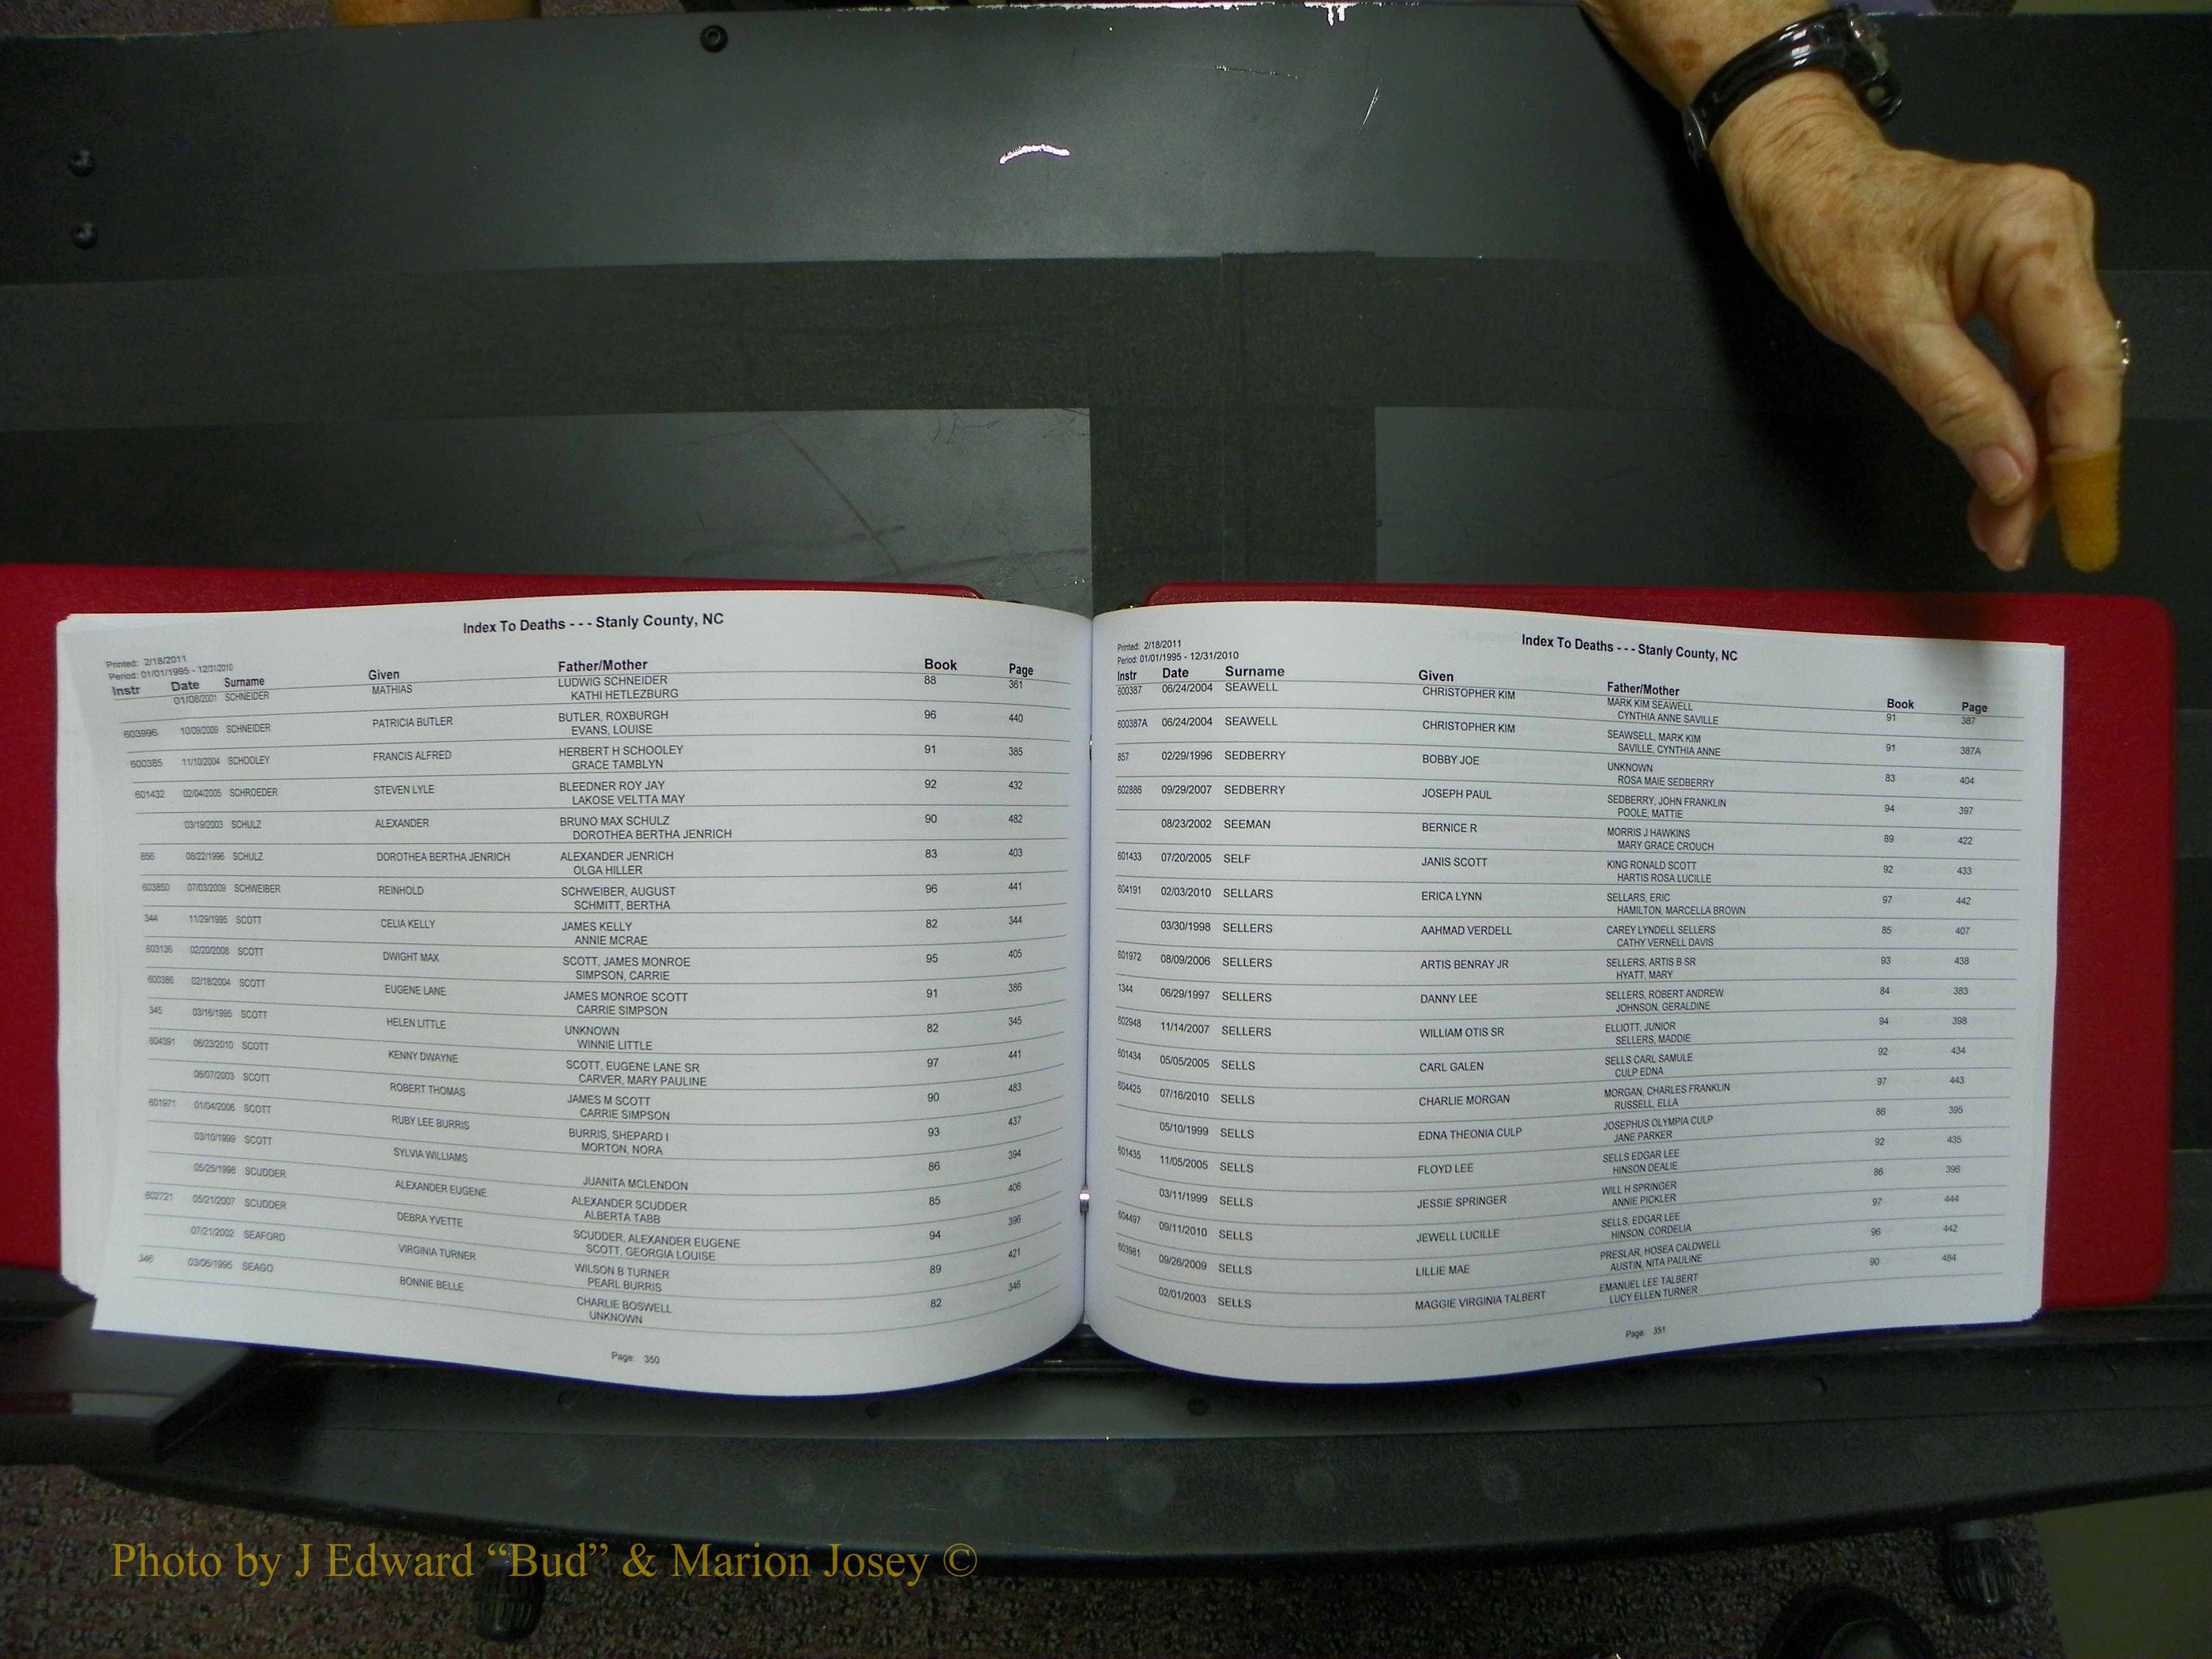 Index To Deaths - - - Stanly County, NC
Printed: 2/18/2011
Period: 01/01/1995 - 12/31/2010
Instr Date Surname Given Father/Mother Book Page
01/08/2001 SCHNEIDER MATHIAS LUDWIG SCHNEIDER 88 361
KATHI HETLEZBURG
603996 10/09/2009 SCHNEIDER PATRICIA BUTLER BUTLER, ROXBURGH 96 440
EVANS, LOUISE
600385 11/10/2004 SCHOOLEY FRANCIS ALFRED HERBERT H SCHOOLEY 91 385
GRACE TAMBLYN
601432 02/04/2005 SCHROEDER STEVEN LYLE BLEEDNER ROY JAY 92 432
LAKOSE VELTTA MAY
03/19/2003 SCHULZ ALEXANDER BRUNO MAX SCHULZ 90 482
DOROTHEA BERTHA JENRICH
856 08/22/1996 SCHULZ DOROTHEA BERTHA JENRICH ALEXANDER JENRICH 83 403
OLGA HILLER
603850 07/03/2009 SCHWEIBER REINHOLD SCHWEIBER, AUGUST 96 441
SCHMITT, BERTHA
344 11/29/1995 SCOTT CELIA KELLY JAMES KELLY 82 344
ANNIE MCRAE
603136 02/20/2008 SCOTT DWIGHT MAX SCOTT, JAMES MONROE 95 405
SIMPSON, CARRIE
600386 02/18/2004 SCOTT EUGENE LANE JAMES MONROE SCOTT 91 386
CARRIE SIMPSON
345 03/16/1995 SCOTT HELEN LITTLE UNKNOWN 82 345
WINNIE LITTLE
604391 06/23/2010 SCOTT KENNY DWAYNE SCOTT, EUGENE LANE SR 97 441
CARVER, MARY PAULINE
06/07/2003 SCOTT ROBERT THOMAS JAMES M SCOTT 90 483
CARRIE SIMPSON
601971 01/04/2006 SCOTT RUBY LEE BURRIS BURRIS, SHEPARD I 93 437
MORTON, NORA
03/10/1999 SCOTT SYLVIA WILLIAMS 86 394
JUANITA MCLENDON
05/25/1998 SCUDDER ALEXANDER EUGENE ALEXANDER SCUDDER 85 406
ALBERTA TABB
602721 05/21/2007 SCUDDER DEBRA YVETTE SCUDDER, ALEXANDER EUGENE 94 396
SCOTT, GEORGIA LOUISE
07/21/2002 SEAFORD VIRGINIA TURNER WILSON B TURNER 89 421
PEARL BURRIS
346 03/06/1995 SEAGO BONNIE BELLE CHARLIE BOSWELL 82 346
UNKNOWN
Page: 350
Index To Deaths - - - Stanly County, NC
Printed: 2/18/2011
Period: 01/01/1995 - 12/31/2010
Instr Date Surname Given Father/Mother Book Page
600387 06/24/2004 SEAWELL CHRISTOPHER KIM MARK KIM SEAWELL 91 387
CYNTHIA ANNE SAVILLE
600387A 06/24/2004 SEAWELL CHRISTOPHER KIM SEAWSELL, MARK KIM 91 387A
SAVILLE, CYNTHIA ANNE
857 02/29/1996 SEDBERRY BOBBY JOE UNKNOWN 83 404
ROSA MAIE SEDBERRY
602886 09/29/2007 SEDBERRY JOSEPH PAUL SEDBERRY, JOHN FRANKLIN 94 397
POOLE, MATTIE
08/23/2002 SEEMAN BERNICE R MORRIS J HAWKINS 89 422
MARY GRACE CROUCH
601433 07/20/2005 SELF JANIS SCOTT KING RONALD SCOTT 92 433
HARTIS ROSA LUCILLE
604191 02/03/2010 SELLARS ERICA LYNN SELLARS, ERIC 97 442
HAMILTON, MARCELLA BROWN
03/30/1998 SELLERS AAHMAD VERDELL CAREY LYNDELL SELLERS 85 407
CATHY VERNELL DAVIS
601972 08/09/2006 SELLERS ARTIS BENRAY JR SELLERS, ARTIS B SR 93 438
HYATT, MARY
1344 06/29/1997 SELLERS DANNY LEE SELLERS, ROBERT ANDREW 84 383
JOHNSON, GERALDINE
602948 11/14/2007 SELLERS WILLIAM OTIS SR ELLIOTT, JUNIOR 94 398
SELLERS, MADDIE
601434 05/05/2005 SELLS CARL GALEN SELLS CARL SAMULE 92 434
CULP EDNA
604425 07/16/2010 SELLS CHARLIE MORGAN MORGAN, CHARLES FRANKLIN 97 443
RUSSELL, ELLA
05/10/1999 SELLS EDNA THEONIA CULP JOSEPHUS OLYMPIA CULP 86 395
JANE PARKER
601435 11/05/2005 SELLS FLOYD LEE SELLS EDGAR LEE 92 435
HINSON DEALIE
03/11/1999 SELLS JESSIE SPRINGER WILL H SPRINGER 86 396
ANNIE PICKLER
604497 09/11/2010 SELLS JEWELL LUCILLE SELLS, EDGAR LEE 97 444
HINSON, CORDELIA
603981 09/26/2009 SELLS LILLIE MAE PRESLAR, HOSEA CALDWELL 96 442
AUSTIN, NITA PAULINE
02/01/2003 SELLS MAGGIE VIRGINIA TALBERT EMANUEL LEE TALBERT 90 484
LUCY ELLEN TURNER
Page: 351
Photo by J Edward “Bud” & Marion Josey ©